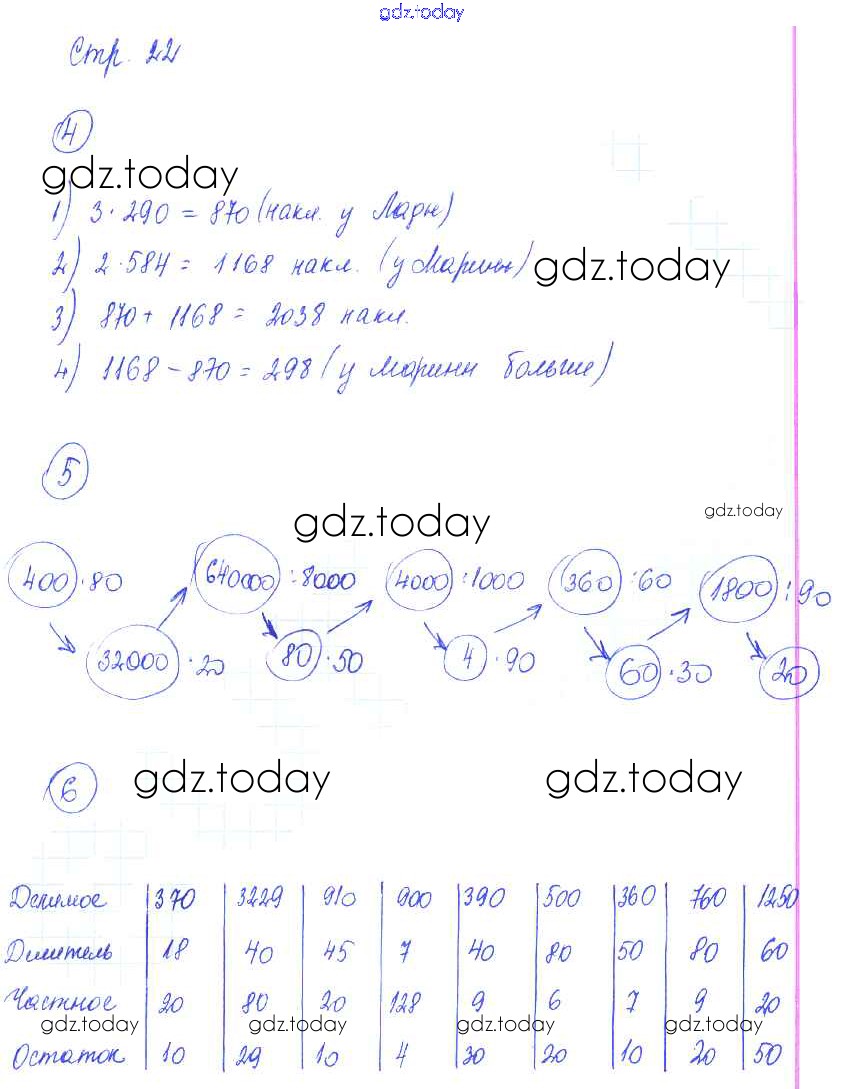 gdz.today
Стр. 22
4
gdz.today
1) 3 · 290 = 870 (накл. у Лады)
2) 2 · 584 = 1168 накл. (у Марины) gdz.today
3) 870 + 1168 = 2038 накл.
4) 1168 - 870 = 298 (у Марины больше)
5
gdz.today gdz.today
400 · 80 640000 : 8000 4000 : 1000 360 : 60 1800 : 90
32000 · 20 80 · 50 4 · 90 60 · 30 20
6 gdz.today gdz.today
Делимое 370 3229 910 900 390 500 360 760 1250
Делитель 18 40 45 7 40 80 50 80 60
Частное 20 80 20 128 9 6 7 9 20
gdz.today gdz.today gdz.today gdz.today
Остаток 10 29 10 4 30 20 10 20 50